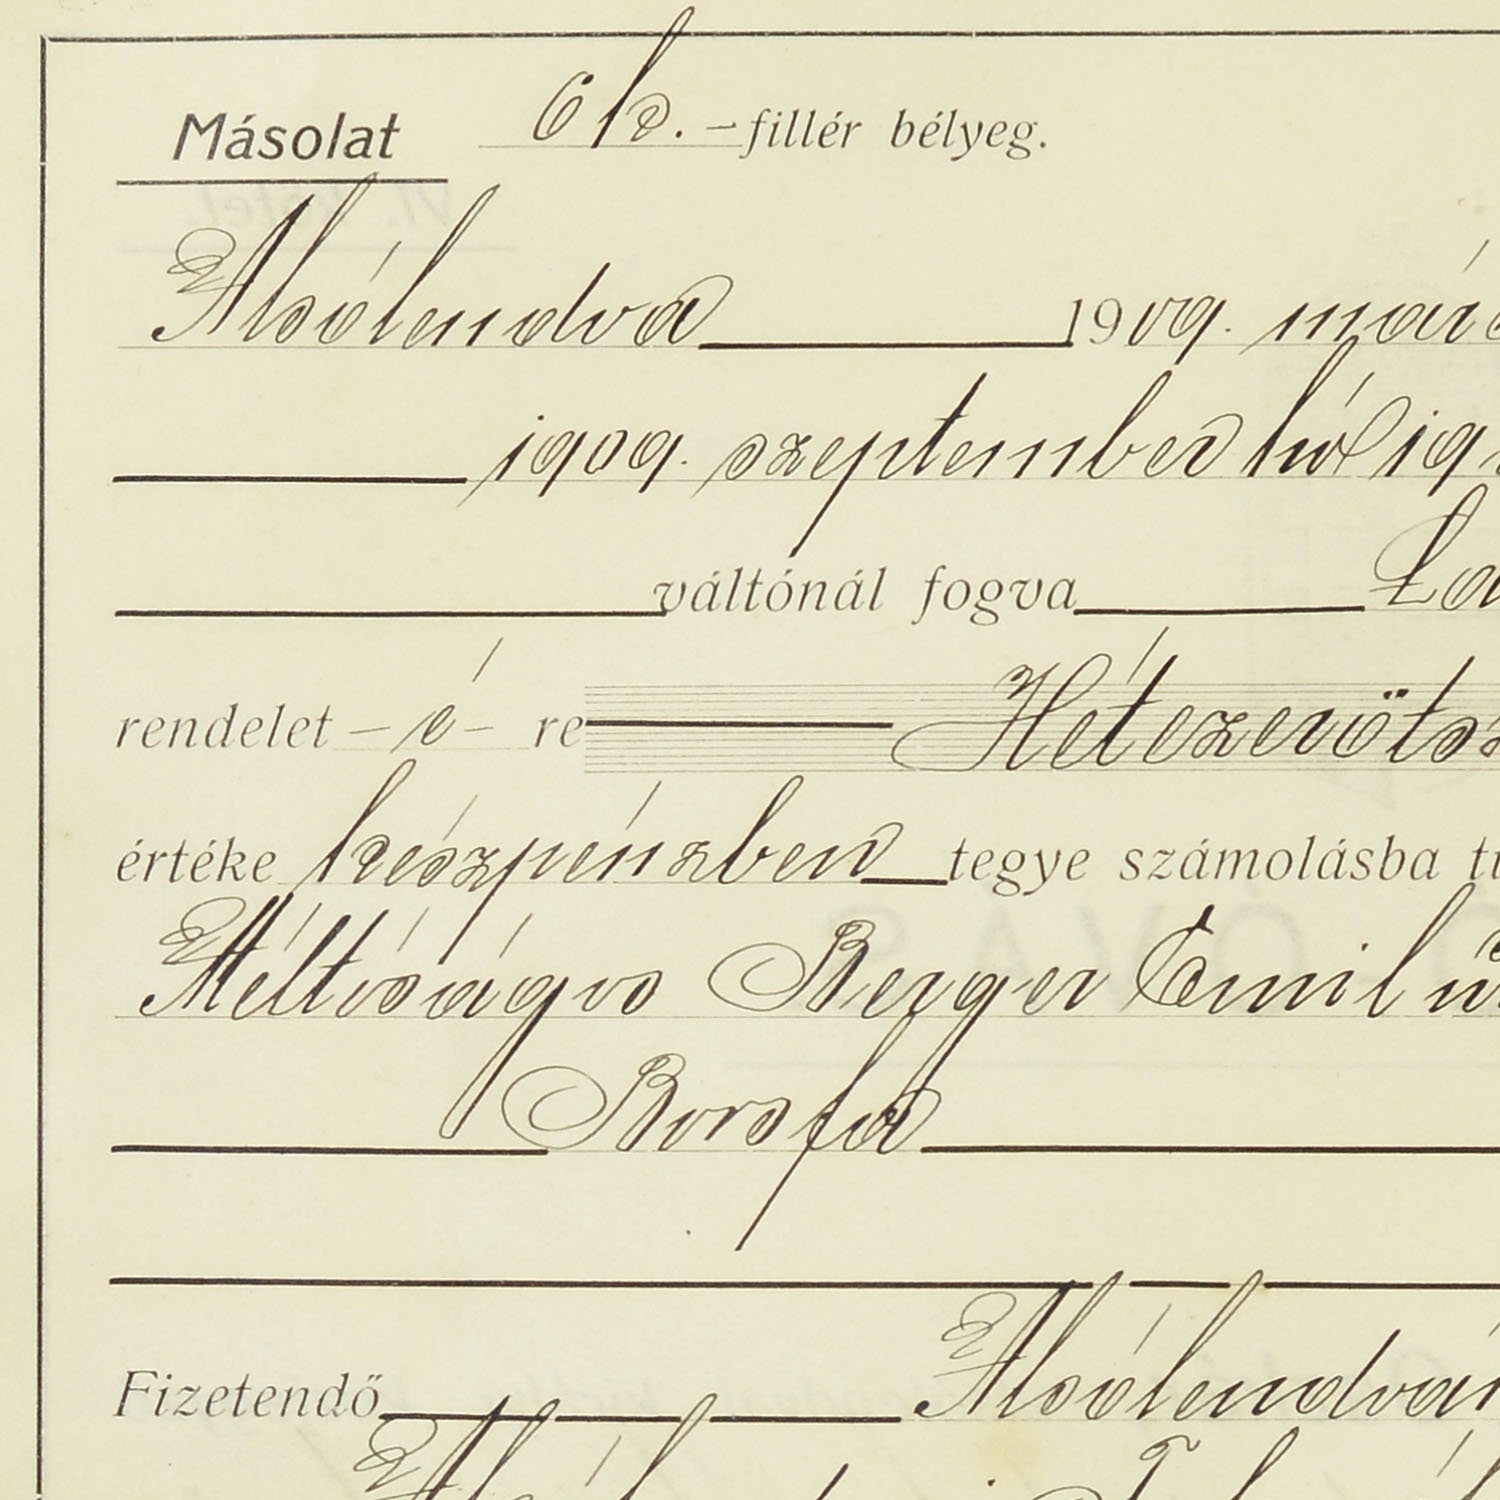 Másolat 6 k. - fillér bélyeg.
Alsólendva 1909. márc
1909. szeptember hó 19
váltónál fogva La
rendelet - é - re Hétezerötsz
értéke készpénzben tegye számolásba
Méltóságos Berger Emil úr
Borsfa
Fizetendő Alsólendván